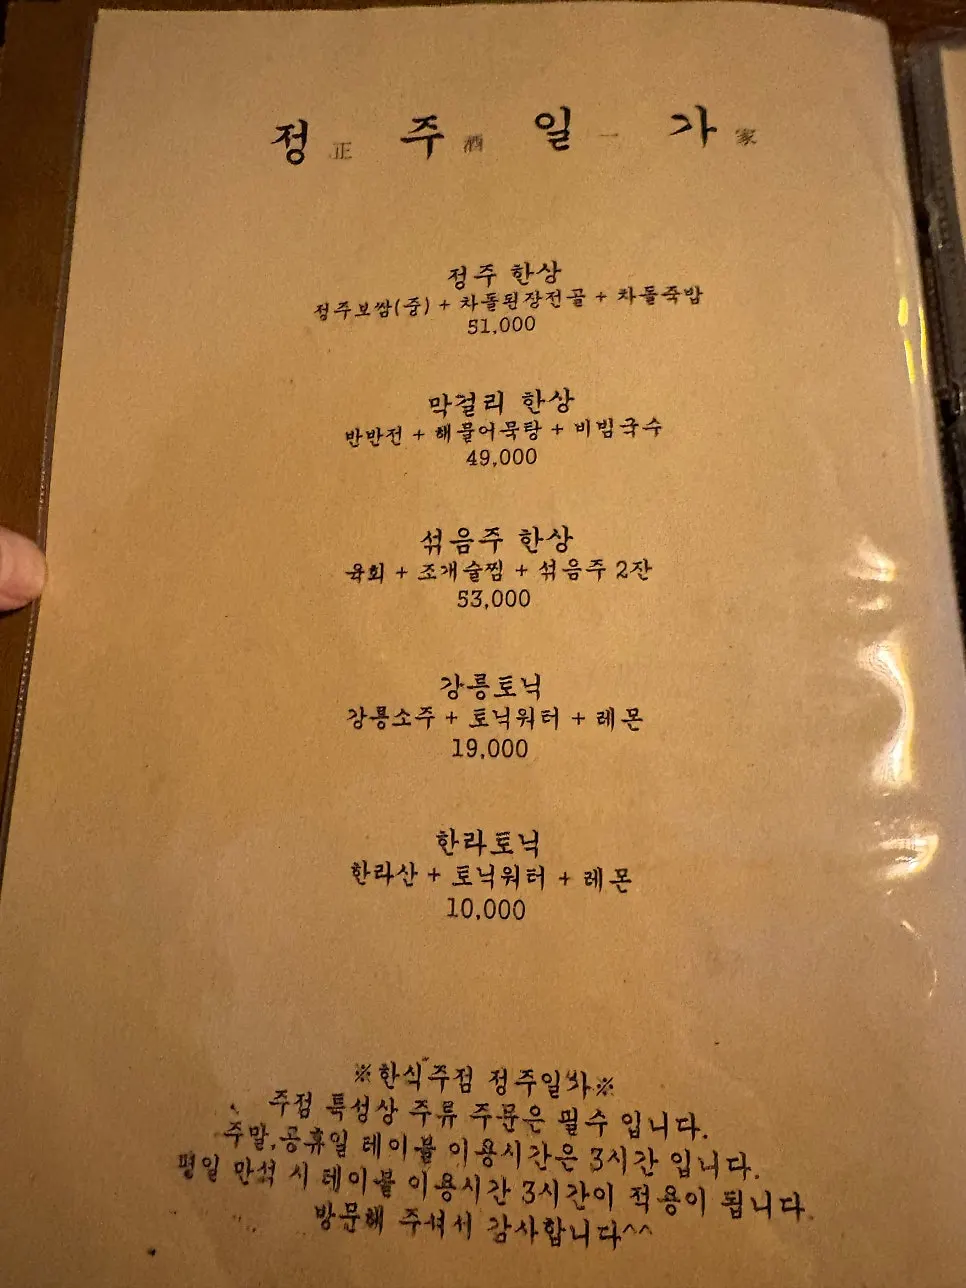 정正 주酒 일一 가家
정주 한상
정주보쌈(중) + 차돌된장전골 + 차돌죽밥
51,000
막걸리 한상
반반전 + 해물어묵탕 + 비빔국수
49,000
섞음주 한상
육회 + 조개술찜 + 섞음주 2잔
53,000
강릉토닉
강릉소주 + 토닉워터 + 레몬
19,000
한라토닉
한라산 + 토닉워터 + 레몬
10,000
※한식주점 정주일가※
주점 특성상 주류 주문은 필수 입니다.
주말,공휴일 테이블 이용시간은 3시간 입니다.
평일 만석 시 테이블 이용시간 3시간이 적용이 됩니다.
방문해 주셔서 감사합니다^^